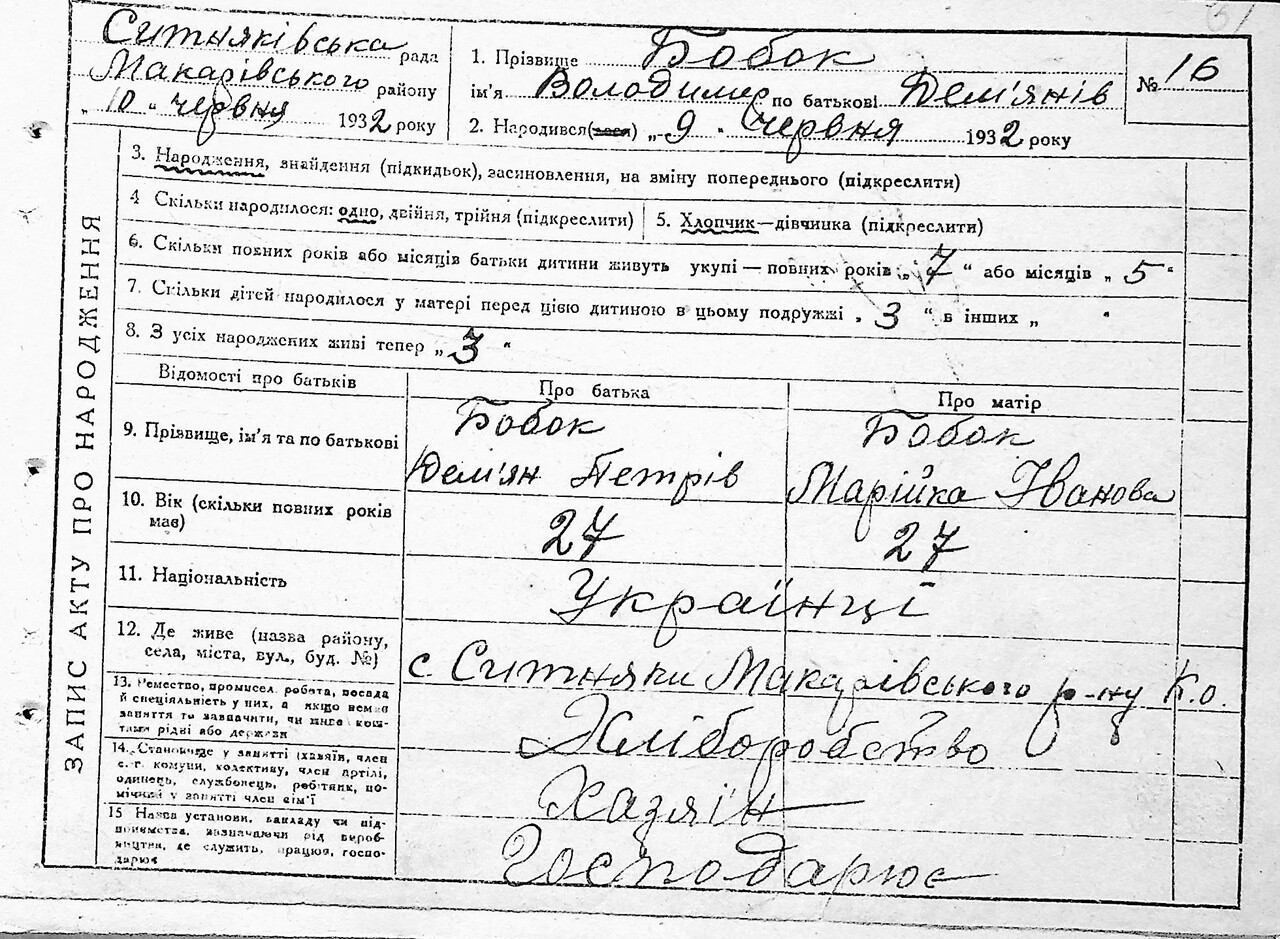 Ситняківська рада
Макарівського району
„ 10 " червня 1932 року
1. Прізвище Бобок
ім'я Володимир по батькові Дем'янів
2. Народився(лася) „ 9 " червня 1932 року
№ 16
ЗАПИС АКТУ ПРО НАРОДЖЕННЯ
3. Народження, знайдення (підкидьок), засиновлення, на зміну попереднього (підкреслити)
4 Скільки народилося: одно, двійня, трійня (підкреслити) 5. Хлопчик—дівчинка (підкреслити)
6. Скільки повних років або місяців батьки дитини живуть укупі — повних років „ 7 " або місяців „ 5 "
7. Скільки дітей народилося у матері перед цією дитиною в цьому подружжі „ 3 " в інших „ "
8. З усіх народжених живі тепер „ 3 "
Відомості про батьків Про батька Про матір
9. Прізвище, ім'я та по батькові
Бобок
Дем'ян Петрів
Бобок
Марійка Іванова
10. Вік (скільки повних років
має)
27 27
11. Національність Українці
12. Де живе (назва району,
села, міста, вул., буд. №)
с Ситняки Макарівського р-ну К.о.
13. Ремество, промисел, робота, посада
й спеціяльність у них, а якщо немає
заняття то зазначити, чи живе кош-
тами рідні або держави
Хліборобство
14. Становище у занятті (хазяїн, член
с.-г. комуни, колективу, член артілі,
одинець, службовець, робітник, по-
мічний у занятті член сім'ї
Хазяїн
15 Назва установи, закладу чи під-
приємства, зазначаючи рід вироб-
ництва, де служить, працює, госпо-
дарює
Господарює